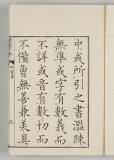 史或所引之書濫踈
無準或字有數義而
不詳或音有數切而
不備曾無善兼美具